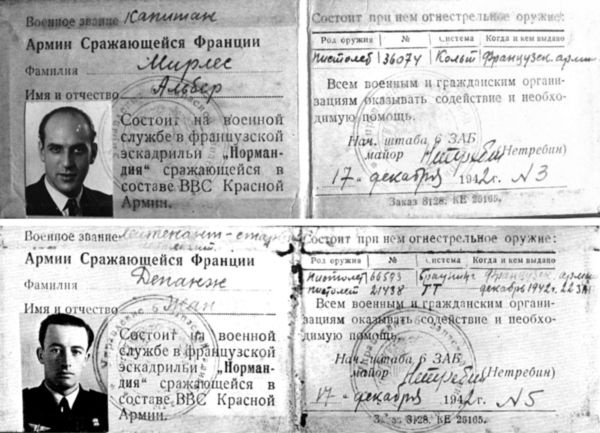 Военное звание Капитан
Армии Сражающейся Франции
Фамилия Мирлес
Имя и отчество Альбер
Состоит на военной
службе в французской
эскадрильи „Норман-
дия" сражающейся в
составе ВВС Красной
Армии.
Состоит при нем огнестрельное оружие:
Род оружия № Система Когда и кем выдано
пистолет 36074 Кольт Французск. арми
Всем военным и гражданским органи-
зациям оказывать содействие и необхо-
димую помощь.
Нач. штаба 6 ЗАБ
майор (Нетребин)
17 декабря 1942 г. №3
Заказ 3128. КЕ 26105.
Военное звание лейтенант-стар
Армии Сражающейся Франции
Фамилия Депанж
Имя и отчество Жан
Состоит на военной
службе в французской
эскадрильи „Норман-
дия" сражающейся в
составе ВВС Красной
Армии.
Состоит при нем огнестрельное оружие:
Род оружия № Система Когда и кем выдано
пистолет 66593 Браунинг Французск. арми
пистолет 21438 ТТ декабрь 1942 г. 22
Всем военным и гражданским органи-
зациям оказывать содействие и необхо-
димую помощь.
Нач. штаба 6 ЗАБ
майор (Нетребин)
17 декабря 1942 г. №5
Заказ 3128. КЕ 26105.